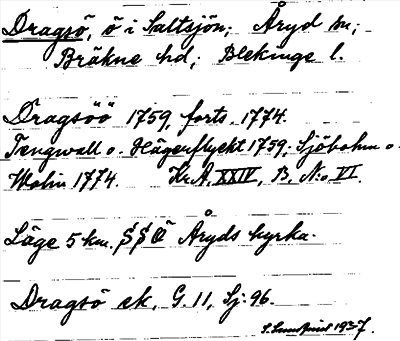 Dragsö, ö i Saltsjön; Åryd sn;
Bräkne hd; Blekinge l.
Dragsöö 1759, forts. 1774.
Tengwall o. Hägerflyckt 1759; Sjöbohm o.
Wolin 1774. Kr.A. XXIV, B, N:o VI.
Läge 5 km. SSO Åryds kyrka.
Dragsö ek. G. 11, Sj. 96.
1937.